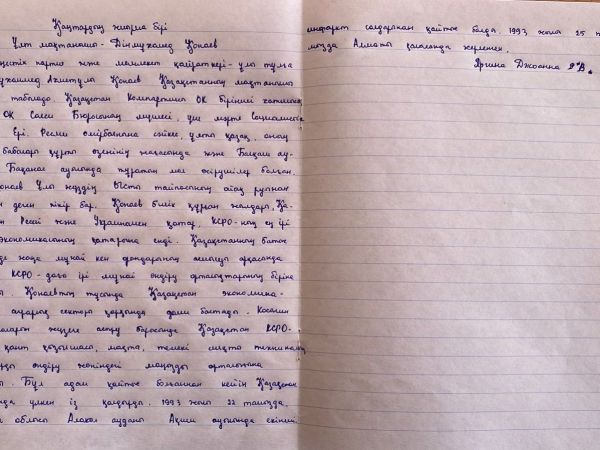 Қаңтардың жиырма бірі
Ұлт мақтанышы - Дінмұхамед Қонаев
партия және мемлекет қайраткері - ұлы тұлға
Ахметұлы Қонаев Қазақстанның мақтанышы
табылады. Қазақстан Компартиясы ОК бірінші хатшысы,
ОК Саяси Бюросының мүшесі, үш мәрте Социалистік
Ері. Ресми өмірбаянына сәйкес, ұлты қазақ, оның
бабалары құрты өзенінің жағасында және Балқаш ау-
Бақанас ауылында тұратын мал өсірушілер болған.
Қонаев Ұлы жүздің Ысты тайпасының ойық руынан
деген пікір бар. Қонаев билік құрған жылдары, Қа-
Ресей және Украинамен қатар, КСРО-ның ең ірі
экономикасының қатарына енді. Қазақстанның батыс
жаңа мұнай кен орындарының ашылуы арқасында
КСРО-дағы ірі мұнай өндіру орталықтарының біріне
Қонаевтың тұсында Қазақстан экономика-
аграрлық секторы қарқынды дами бастады. Косыгин
жүзеге асыру барысында Қазақстан КСРО-
қант қызылшасы, мақта, темекі сияқты техникалық
өндіру жөніндегі маңызды орталығына
Бұл адам қайтыс болғаннан кейін Қазақстан
үлкен із қалдырды. 1993 жылы 22 тамызда
облысы Алакөл ауданы Ақши ауылында екінші
инфаркт салдарынан қайтыс болды. 1993 жылы 25 т
мызда Алматы қаласында жерленген.
Ярина Джоанна 9"В"